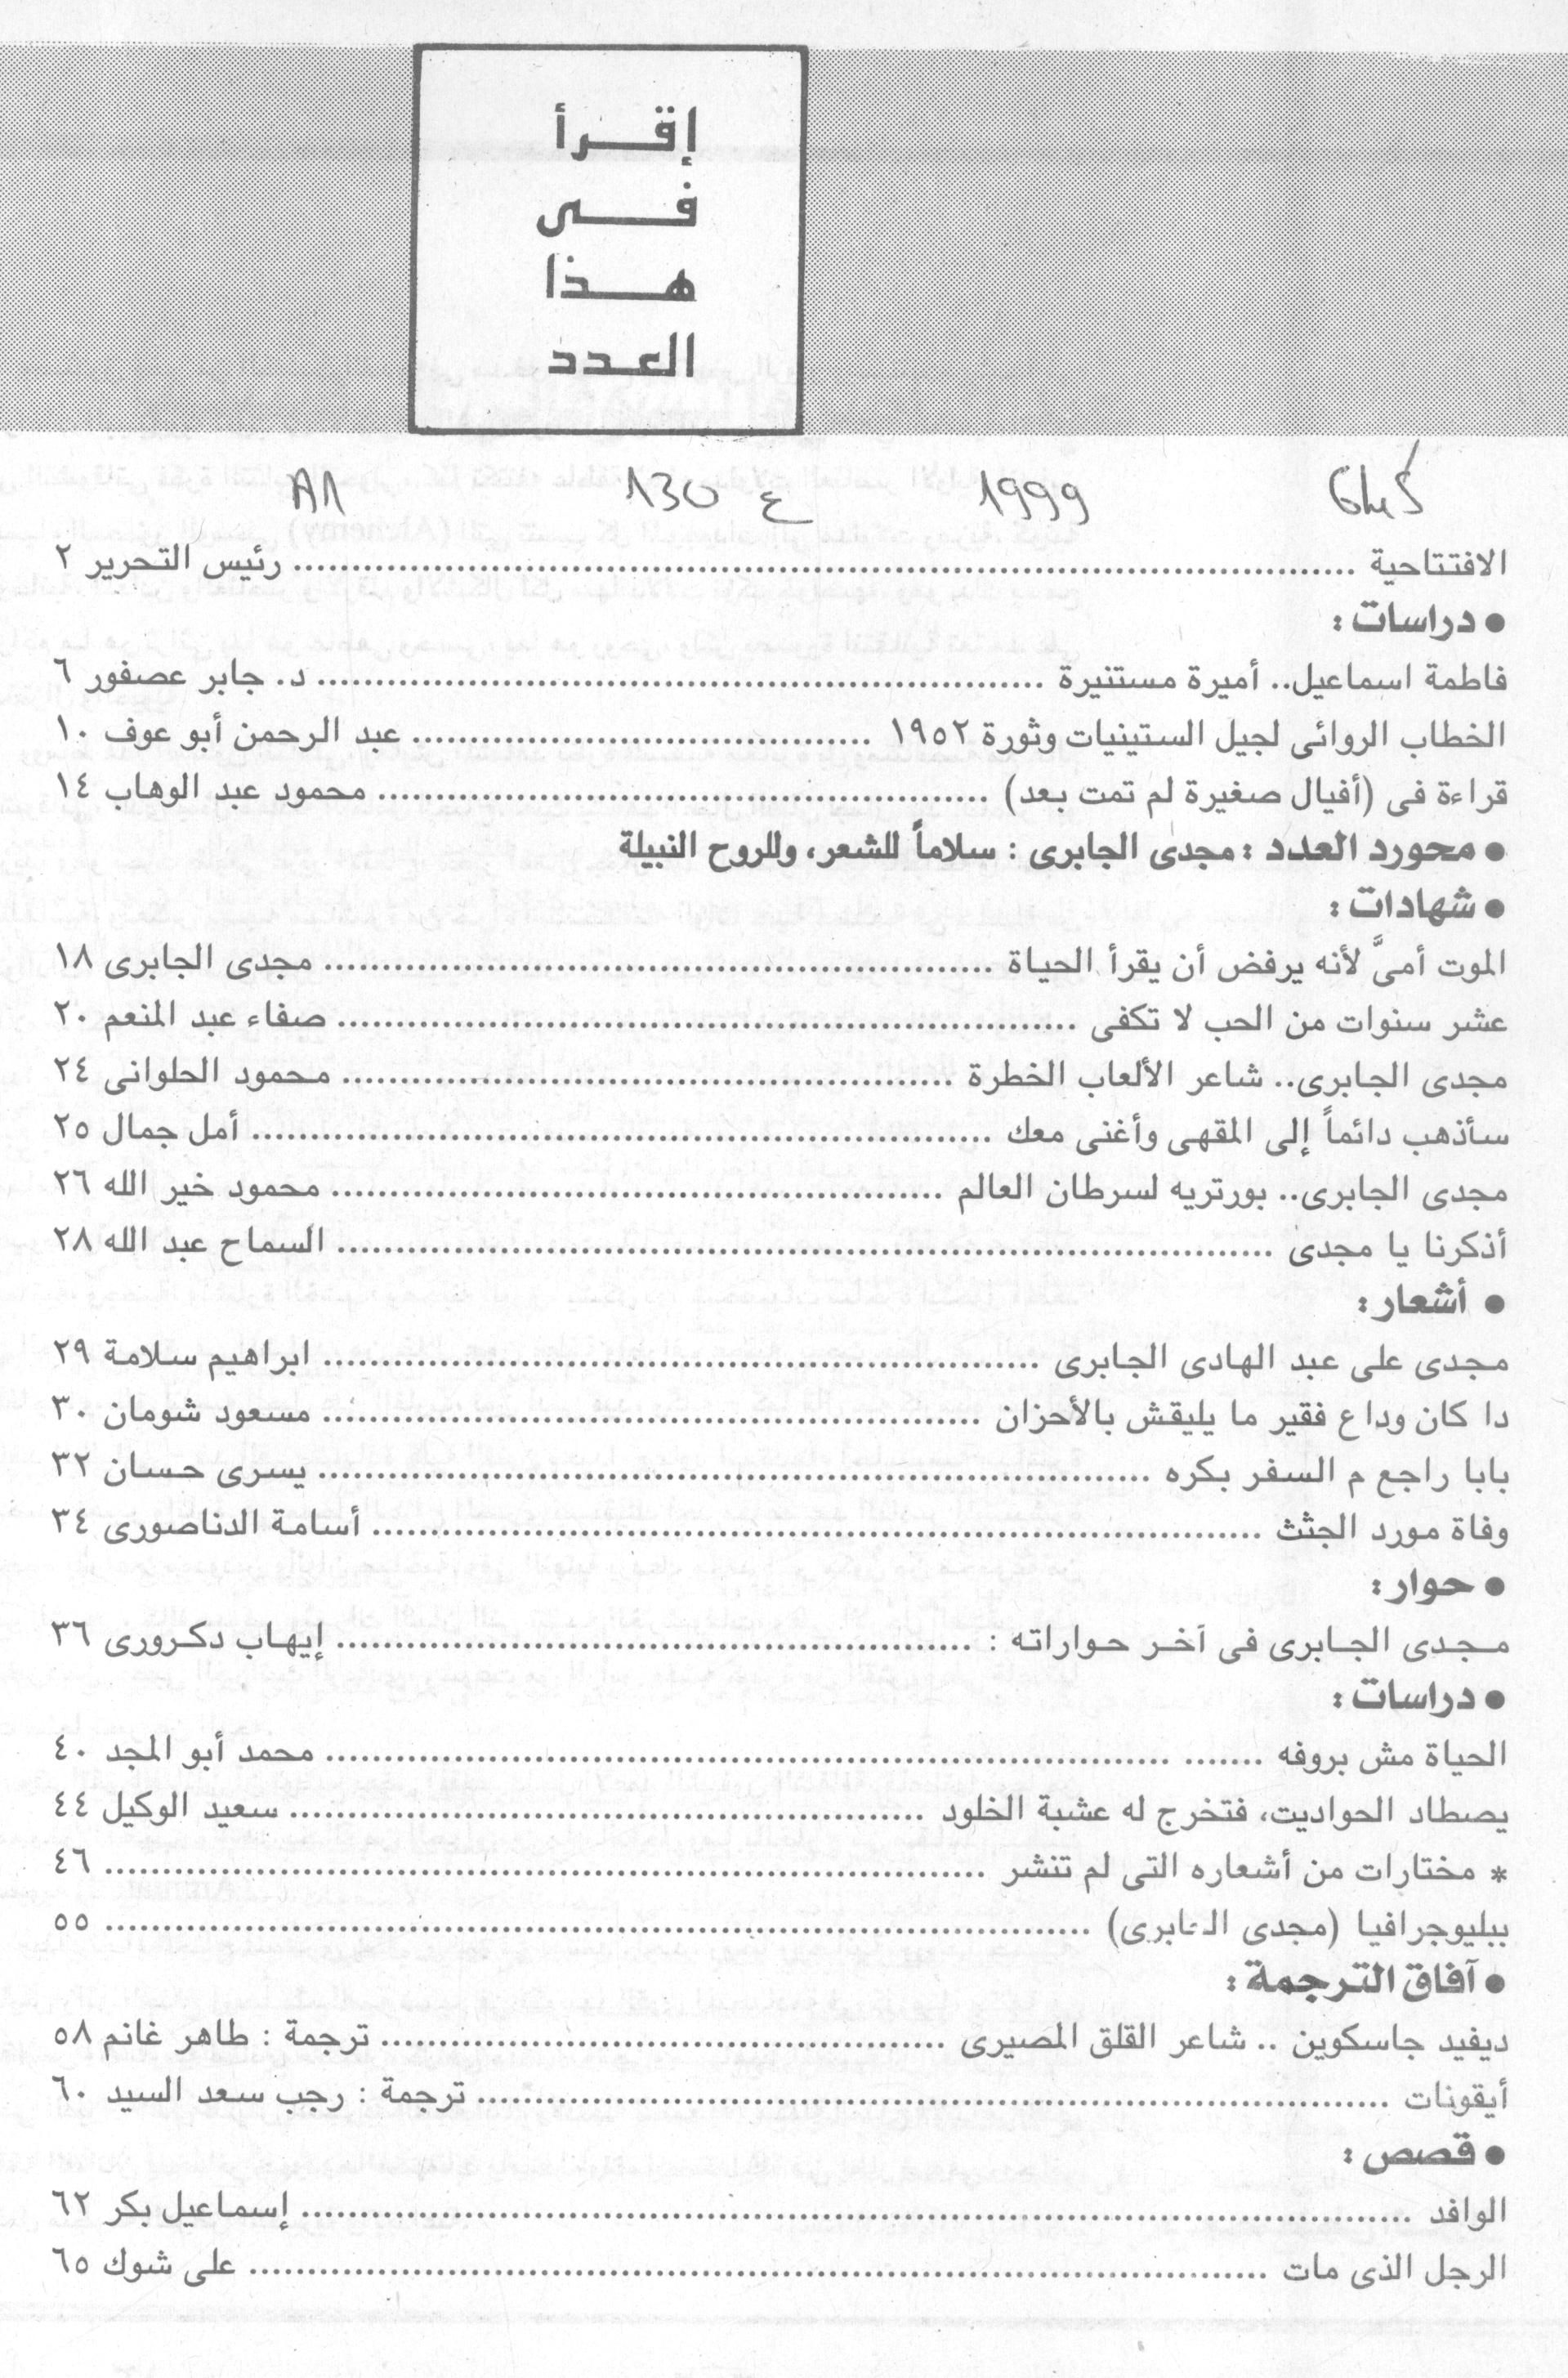 إقرأ
فى
هذا
العدد
1999 ع 130
الافتتاحية ........ رئيس التحرير ٢
● دراسات :
فاطمة اسماعيل.. أميرة مستنيرة ........ د. جابر عصفور ٦
الخطاب الروائى لجيل الستينيات وثورة ١٩٥٢ ........ عبد الرحمن أبو عوف ١٠
قراءة فى (أفيال صغيرة لم تمت بعد) ........ محمود عبد الوهاب ١٤
● محورد العدد : مجدى الجابرى : سلاماً للشعر، وللروح النبيلة
● شهادات :
الموت أمىَّ لأنه يرفض أن يقرأ الحياة ........ مجدى الجابرى ١٨
عشر سنوات من الحب لا تكفى ........ صفاء عبد المنعم ٢٠
مجدى الجابرى.. شاعر الألعاب الخطرة ........ محمود الحلوانى ٢٤
سأذهب دائماً إلى المقهى وأغنى معك ........ أمل جمال ٢٥
مجدى الجابرى.. بورتريه لسرطان العالم ........ محمود خير الله ٢٦
أذكرنا يا مجدى ........ السماح عبد الله ٢٨
● أشعار :
مجدى على عبد الهادى الجابرى ........ ابراهيم سلامة ٢٩
دا كان وداع فقير ما يليقش بالأحزان ........ مسعود شومان ٣٠
بابا راجع م السفر بكره ........ يسرى حسان ٣٢
وفاة مورد الجثث ........ أسامة الدناصورى ٣٤
● حوار :
مجدى الجابرى فى آخر حواراته : ........ إيهاب دكرورى ٣٦
● دراسات :
الحياة مش بروفه ........ محمد أبو المجد ٤٠
يصطاد الحواديت، فتخرج له عشبة الخلود ........ سعيد الوكيل ٤٤
* مختارات من أشعاره التى لم تنشر ........ ٤٦
ببليوجرافيا (مجدى الجابرى) ........ ٥٥
● آفاق الترجمة :
ديفيد جاسكوين .. شاعر القلق المصيرى ........ ترجمة : طاهر غانم ٥٨
أيقونات ........ ترجمة : رجب سعد السيد ٦٠
● قصص :
الوافد ........ إسماعيل بكر ٦٢
الرجل الذى مات ........ على شوك ٦٥